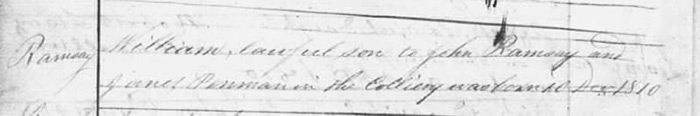 Ramsay William, lawful son to John Ramsay and
Janet Penman in the Colliery was born 10 Dec 1810